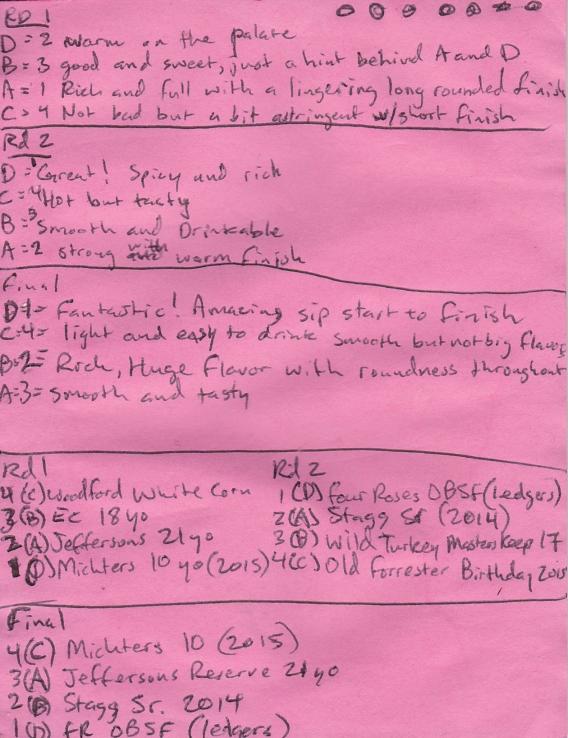 RD 1
D = 2 warm on the palate
B = 3 good and sweet, just a hint behind A and D
A = 1 Rich and full with a lingering long rounded finish
C > 4 Not bad but a bit astringent w/short finish
Rd 2
D = 1 Great! Spicy and rich
C = 4 Hot but tasty
B = 3 Smooth and Drinkable
A = 2 strong with warm finish
Final
D1 = Fantastic! Amazing sip start to finish
C=4= light and easy to drink smooth but not big flavor
B=2= Rich, Huge Flavor with roundness throughout
A=3= smooth and tasty
Rd 1 Rd 2
4 (C) Woodford White Corn 1 (D) Four Roses OBSF (Ledgers)
3 (B) EC 18 yo 2 (A) Stagg Sr (2014)
2 (A) Jeffersons 21 yo 3 (B) Wild Turkey Masters Keep 17
1 (D) Michters 10 yo (2015) 4 (C) Old Forrester Birthday 2015
Final
4 (C) Michters 10 (2015)
3 (A) Jeffersons Reserve 21 yo
2 (B) Stagg Sr. 2014
1 (D) FR OBSF (ledgers)